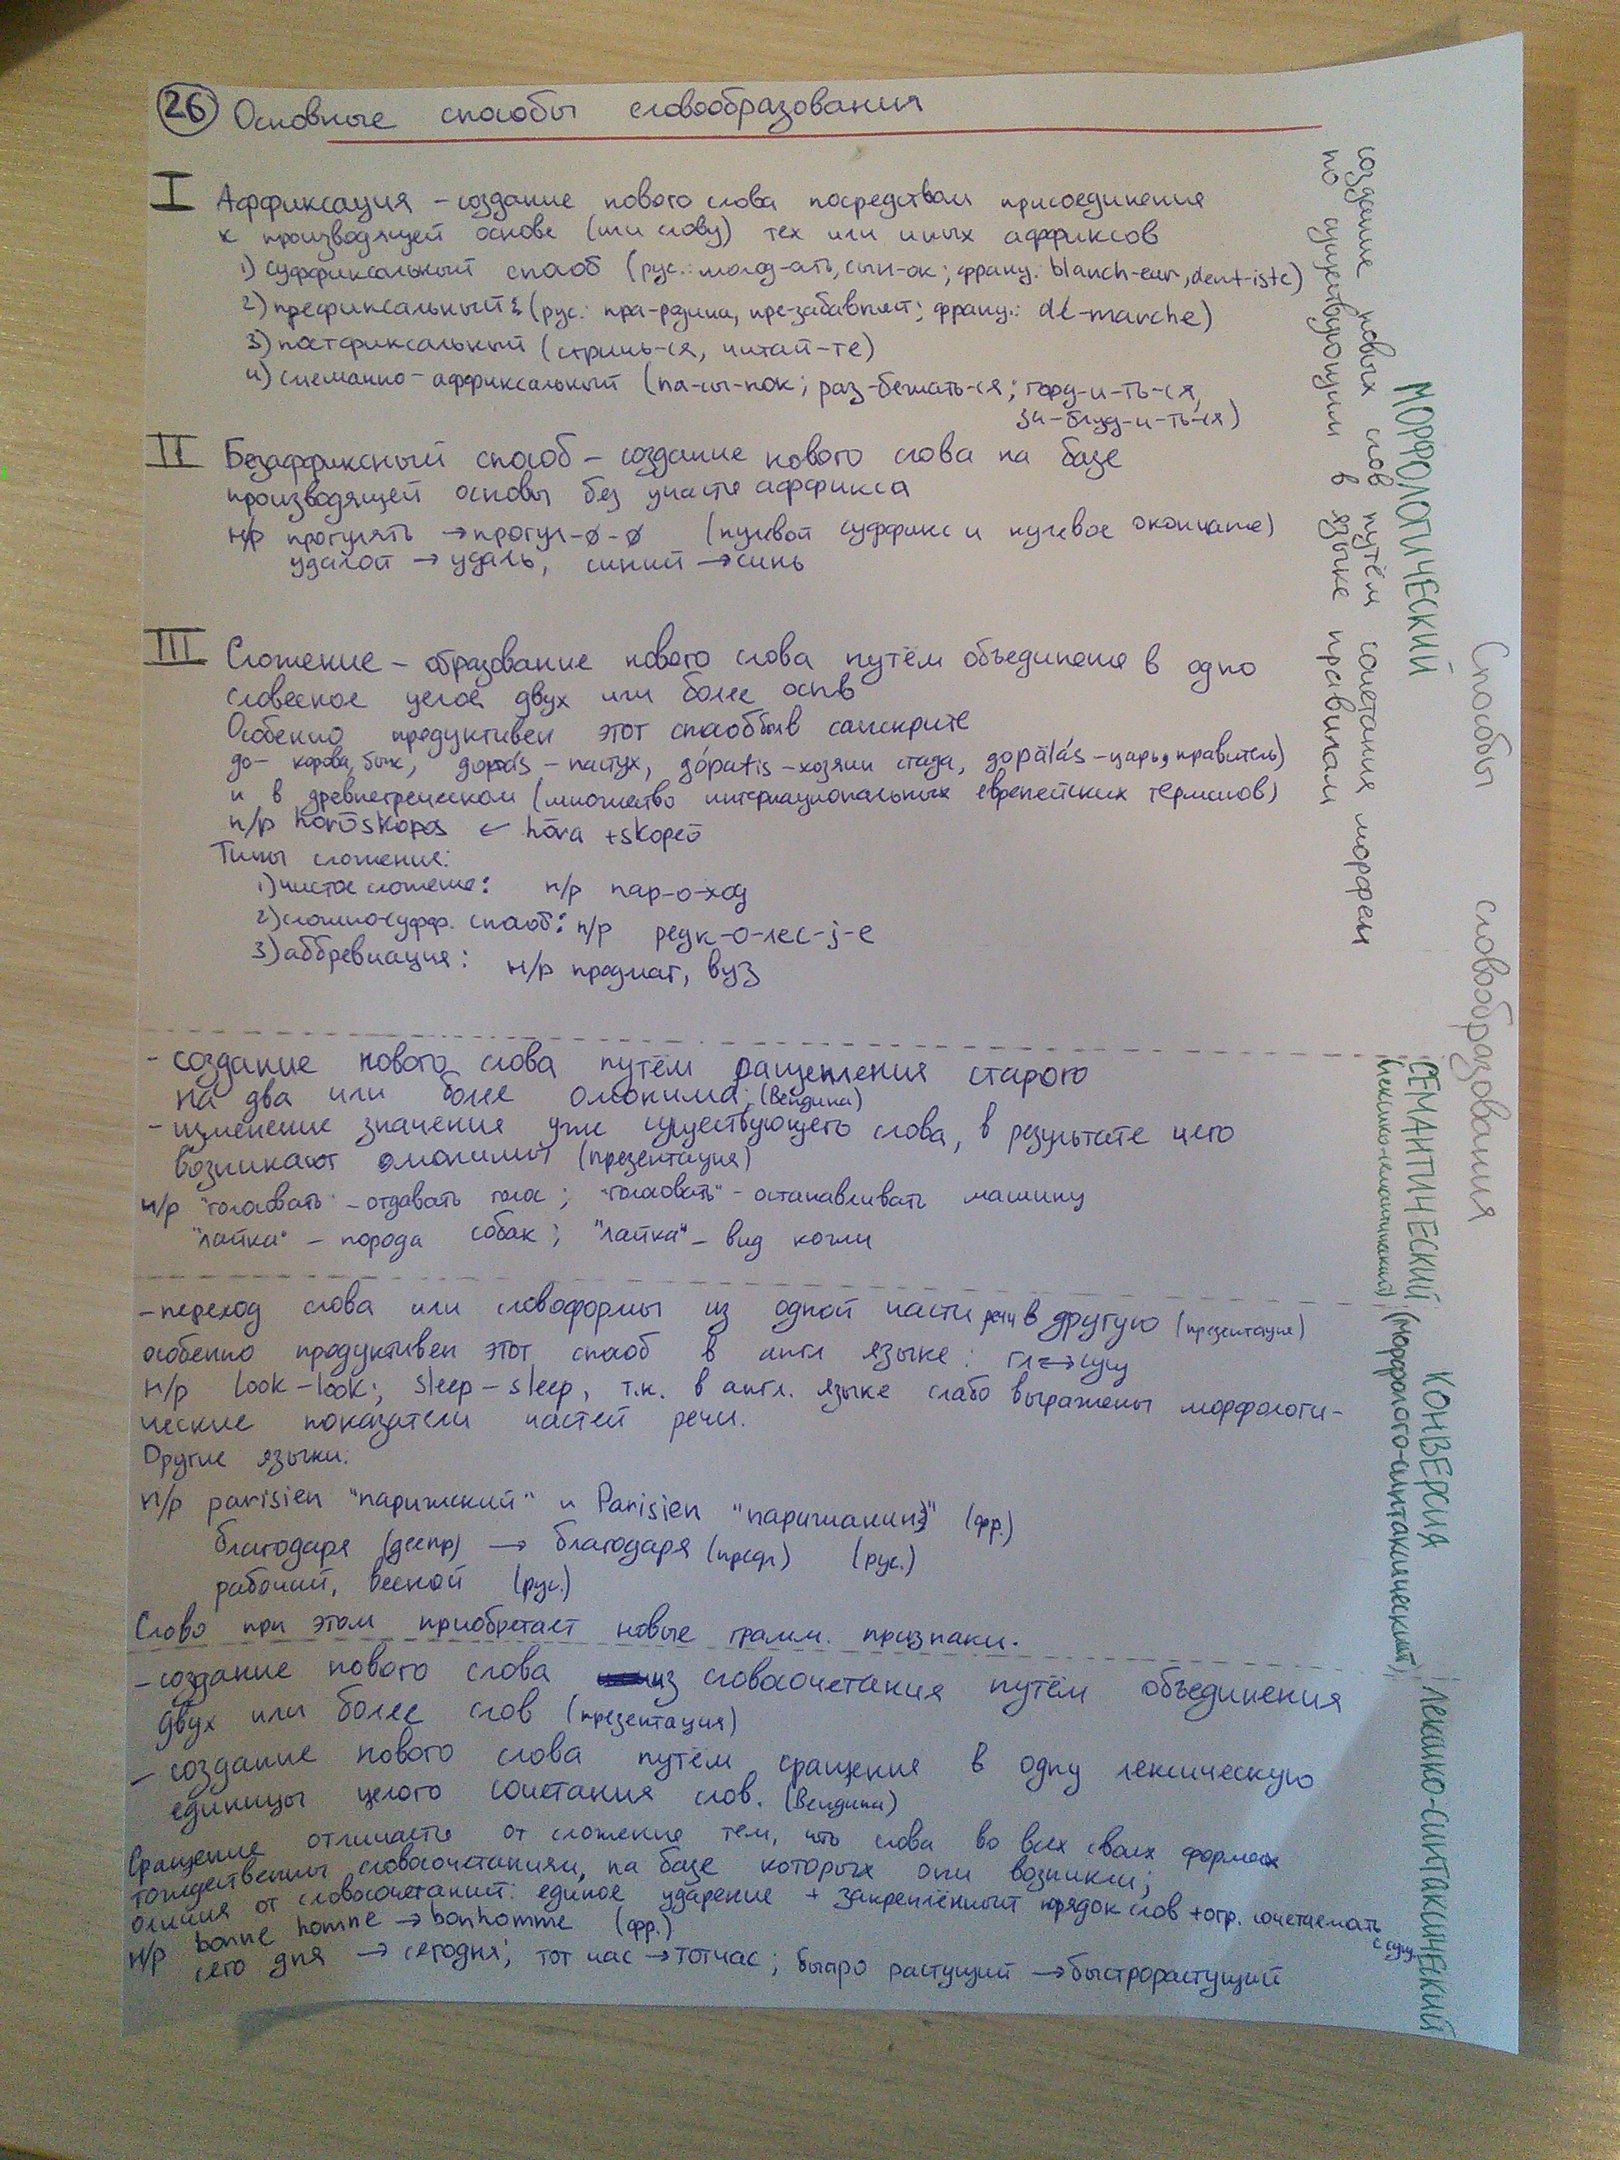 26 Основные способы словообразования
I Аффиксация – создание нового слова посредством присоединения
к производящей основе (или слову) тех или иных аффиксов
1) суффиксальный способ (рус.: молод-ать, сын-ок; франц. blanch-eur, dent-iste)
2) префиксальный (рус.: пра-родина, пре-забавный; франц.: dé-marche)
3) постфиксальный (стричь-ся, читай-те)
4) смешанно-аффиксальный (па-сы-нок; раз-бежать-ся; горд-и-ть-ся,
за-блуд-и-ть-ся)
II Безаффиксный способ – создание нового слова на базе
производящей основы без участия аффикса
н/р прогулять → прогул-ø-ø (нулевой суффикс и нулевое окончание)
удалой → удаль, синий → синь
III Сложение – образование нового слова путём объединения в одно
словесное целое двух или более основ
Особенно продуктивен этот способ был в санскрите
go- корова, бык, gopás – пастух, gópatis – хозяин стада, gopālás – царь, правитель)
и в древнегреческом (множество интернациональных европейских терминов)
н/р hōroskopos ← hōra + skopeō
Типы сложения:
1) чистое сложение: н/р пар-о-ход
2) сложно-суфф. способ: н/р редк-о-лес-j-е
3) аббревиация: н/р продмаг, вуз
– создание нового слова путём ращепления старого
на два или более омонима; (Вендина)
– изменение значения уже существующего слова, в результате чего
возникают омонимы (презентация)
н/р "голосовать" – отдавать голос; "голосовать" – останавливать машину
"лайка" – порода собак; "лайка" – вид кожи
– переход слова или словоформы из одной части речи в другую (презентация)
особенно продуктивен этот способ в англ языке: гл ↔ сущ
н/р look – look; sleep – sleep, т.к. в англ. языке слабо выражены морфологи-
ческие показатели частей речи.
Другие языки.
н/р parisien "парижский" и Parisien "парижанин" (фр.)
благодаря (деепр) → благодаря (предл) (рус.)
рабочий, весной (рус.)
Слово при этом приобретает новые грамм. признаки.
– создание нового слова из словосочетания путём объединения
двух или более слов (презентация)
– создание нового слова путём сращения в одну лексическую
единицы целого сочетания слов. (Вендина)
Сращение отличается от сложения тем, что слова во всех своих формах
тождественны словосочетаниям, на базе которых они возникли;
отличия от словосочетаний: единое ударение + закреплённый порядок слов + огр. сочетаемать
с сущ.
н/р bonne homme → bonhomme (фр.)
сего дня → сегодня; тот час → тотчас; быстро растущий → быстрорастущий
Способы словообразования
МОРФОЛОГИЧЕСКИЙ
создание новых слов путём сочетания морфем
по существующим в языке правилам
СЕМАНТИЧЕСКИЙ
(лексико-семантический)
КОНВЕРСИЯ
(морфолого-синтаксический)
ЛЕКСИКО-СИНТАКСИЧЕСКИЙ